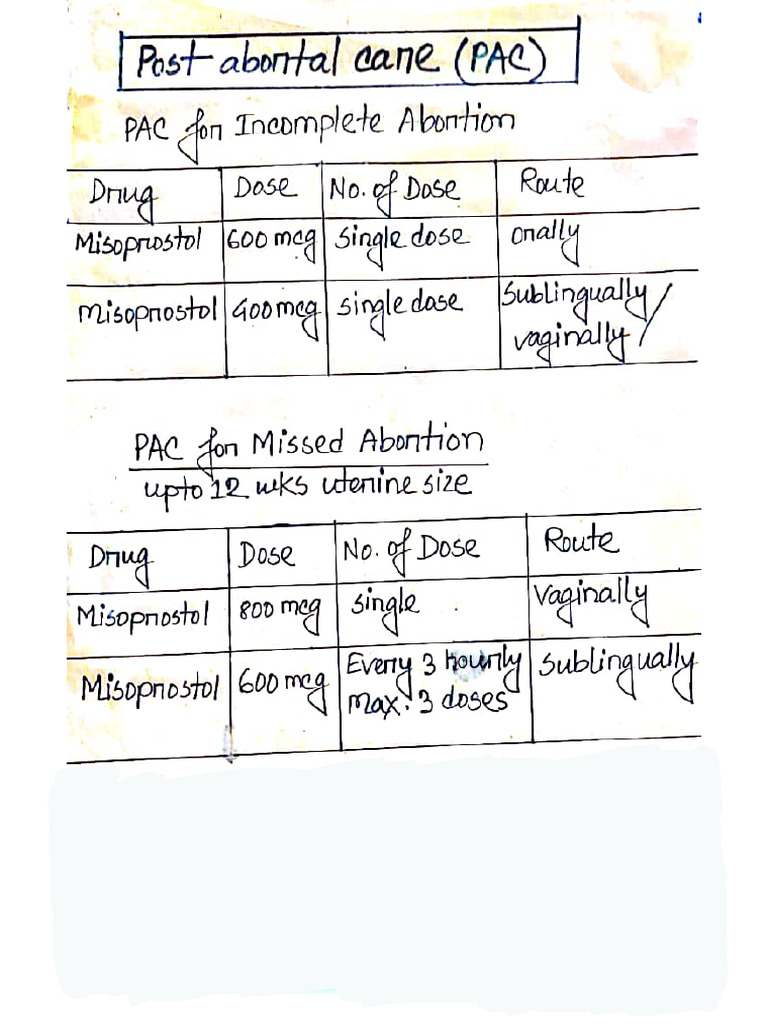 Post abortal care (PAC)
PAC for Incomplete Abortion
Drug Dose No. of Dose Route
Misoprostol 600 mcg single dose orally
Misoprostol 400 mcg single dose Sublingually /
vaginally /
PAC for Missed Abortion
upto 12 wks uterine size
Drug Dose No. of Dose Route
Misoprostol 800 mcg single Vaginally
Misoprostol 600 mcg Every 3 hourly Sublingually
Max: 3 doses